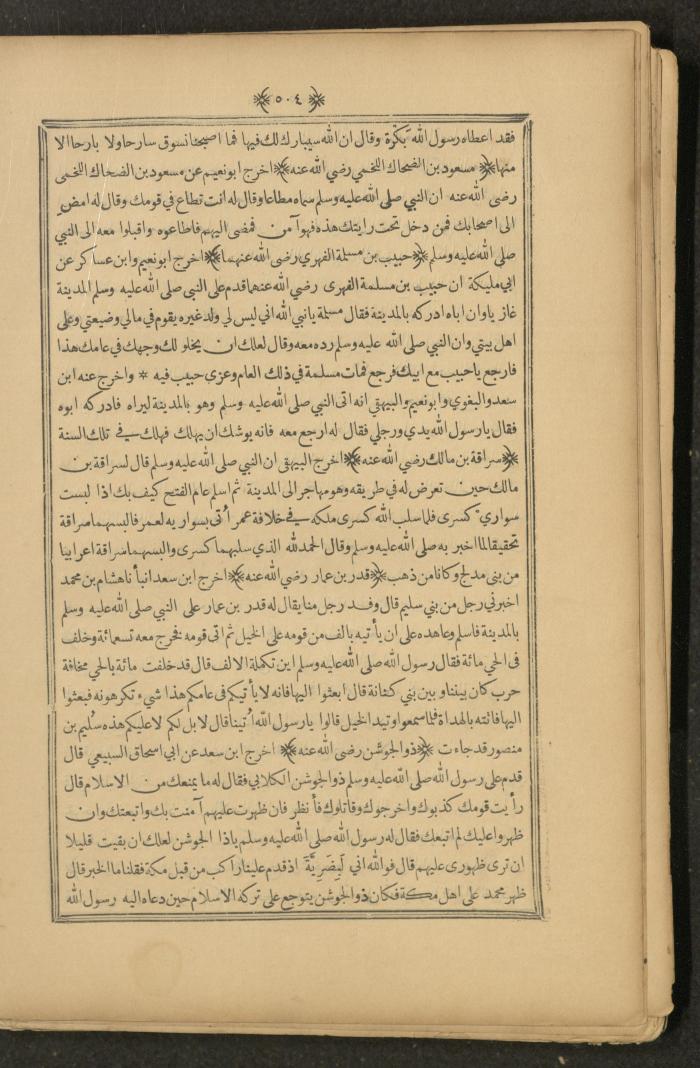 ﴿٥٠٤﴾
فقد اعطاه رسول الله بكرة وقال ان الله سيبارك لك فيها فما اصبحنا نسوق سارحا ولا بارحا الا
منها ﴿مسعود بن الضحاك اللخمي رضي الله عنه﴾ اخرج ابو نعيم عن مسعود بن الضحاك اللخمى
رضى الله عنه ان النبي صلى الله عليه وسلم سماه مطاعا وقال له انت تطاع في قومك وقال له امض
الى اصحابك فمن دخل تحت رايتك هذه فهو آمن فمضى اليهم فاطاعوه واقبلوا معه الى النبي
صلى الله عليه وسلم ﴿حبيب بن مسلمة الفهري رضى الله عنهما﴾ اخرج ابو نعيم وابن عساكر عن
ابي مليكة ان حبيب بن مسلمة الفهرى رضي الله عنهما قدم على النبي صلى الله عليه وسلم المدينة
غازيا وان اباه ادركه بالمدينة فقال مسلمة يا نبي الله اني ليس لي ولد غيره يقوم في مالي وضيعتي وعلى
اهل بيتي وان النبي صلى الله عليه وسلم رده معه وقال لعلك ان يخلو لك وجهك في عامك هذا
فارجع يا حبيب مع ابيك فرجع فمات مسلمة في ذلك العام وعزى حبيب فيه * واخرج عنه ابن
سعد والبغوي وابو نعيم والبيهقي انه اتى النبي صلى الله عليه وسلم وهو بالمدينة ليراه فادركه ابوه
فقال يا رسول الله يدي ورجلي فقال له ارجع معه فانه يوشك ان يهلك فهلك في تلك السنة
﴿سراقة بن مالك رضي الله عنه﴾ اخرج البيهقى ان النبي صلى الله عليه وسلم قال لسراقة بن
مالك حين تعرض له في طريقه وهو مهاجر الى المدينة ثم اسلم عام الفتح كيف بك اذا لبست
سواري كسرى فلما سلب الله كسرى ملكه في خلافة عمر أتى بسواريه لعمر فالبسهما سراقة
تحقيقا لما اخبر به صلى الله عليه وسلم وقال الحمد لله الذي سلبهما كسرى والبسهما سراقة اعرابيا
من بنى مدلج وكانا من ذهب ﴿قدر بن عمار رضي الله عنه﴾ اخرج ابن سعد انبأنا هشام بن محمد
اخبرني رجل من بني سليم قال وفد رجل منا يقال له قدر بن عمار على النبي صلى الله عليه وسلم
بالمدينة فاسلم وعاهده على ان يأتيه بالف من قومه على الخيل ثم اتى قومه فخرج معه تسعمائة وخلف
فى الحي مائة فقال رسول الله صلى الله عليه وسلم اين تكملة الالف قال قد خلفت مائة بالحي مخافة
حرب كان بيننا وبين بني كنانة قال ابعثوا اليها فانه لا يأتيكم فى عامكم هذا شيء تكرهونه فبعثوا
اليها فاتته بالهداة فلما سمعوا وئيد الخيل قالوا يا رسول الله أتينا قال لا بل لكم لا عليكم هذه سُليم بن
منصور قد جاءت ﴿ذو الجوشن رضى الله عنه﴾ اخرج ابن سعد عن ابي اسحاق السبيعي قال
قدم على رسول الله صلى الله عليه وسلم ذو الجوشن الكلابي فقال له ما يمنعك من الاسلام قال
رأيت قومك كذبوك واخرجوك وقاتلوك فأنظر فان ظهرت عليهم آمنت بك واتبعتك وان
ظهروا عليك لم اتبعك فقال له رسول الله صلى الله عليه وسلم يا ذا الجوشن لعلك ان بقيت قليلا
ان ترى ظهورى عليهم قال فوالله اني لَبِضَرِيَّةَ اذ قدم علينا راكب من قبل مكة فقلنا ما الخبر قال
ظهر محمد على اهل مكة فكان ذو الجوشن يتوجع على تركه الاسلام حين دعاه اليه رسول الله